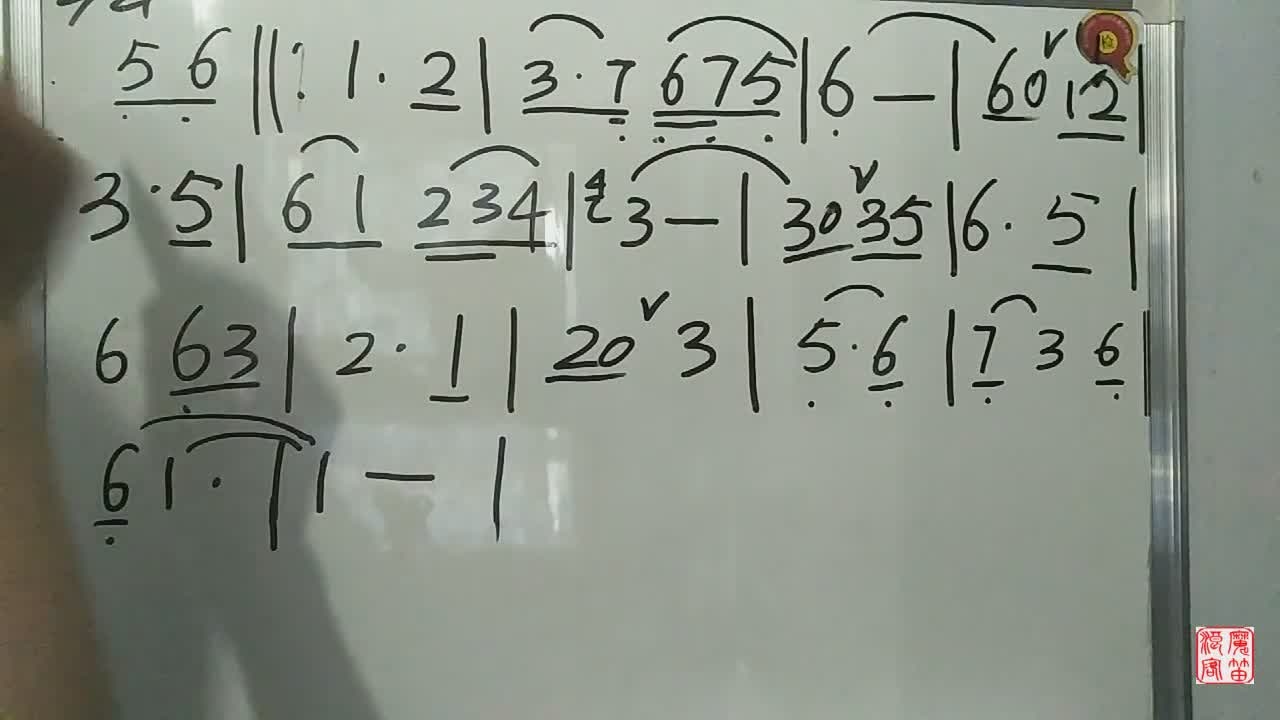 5 6 ‖: 1 · 2 | 3 · 7 6 7 5 | 6 — | 6 0 ∨ 1 2 |
3 · 5 | 6 1 2 3 4 | 4 3 — | 3 0 ∨ 3 5 | 6 · 5 |
6 6 3 | 2 · 1 | 2 0 ∨ 3 | 5 · 6 | 7 3 6 |
6 1 · | 1 — |
魔笛
浪客